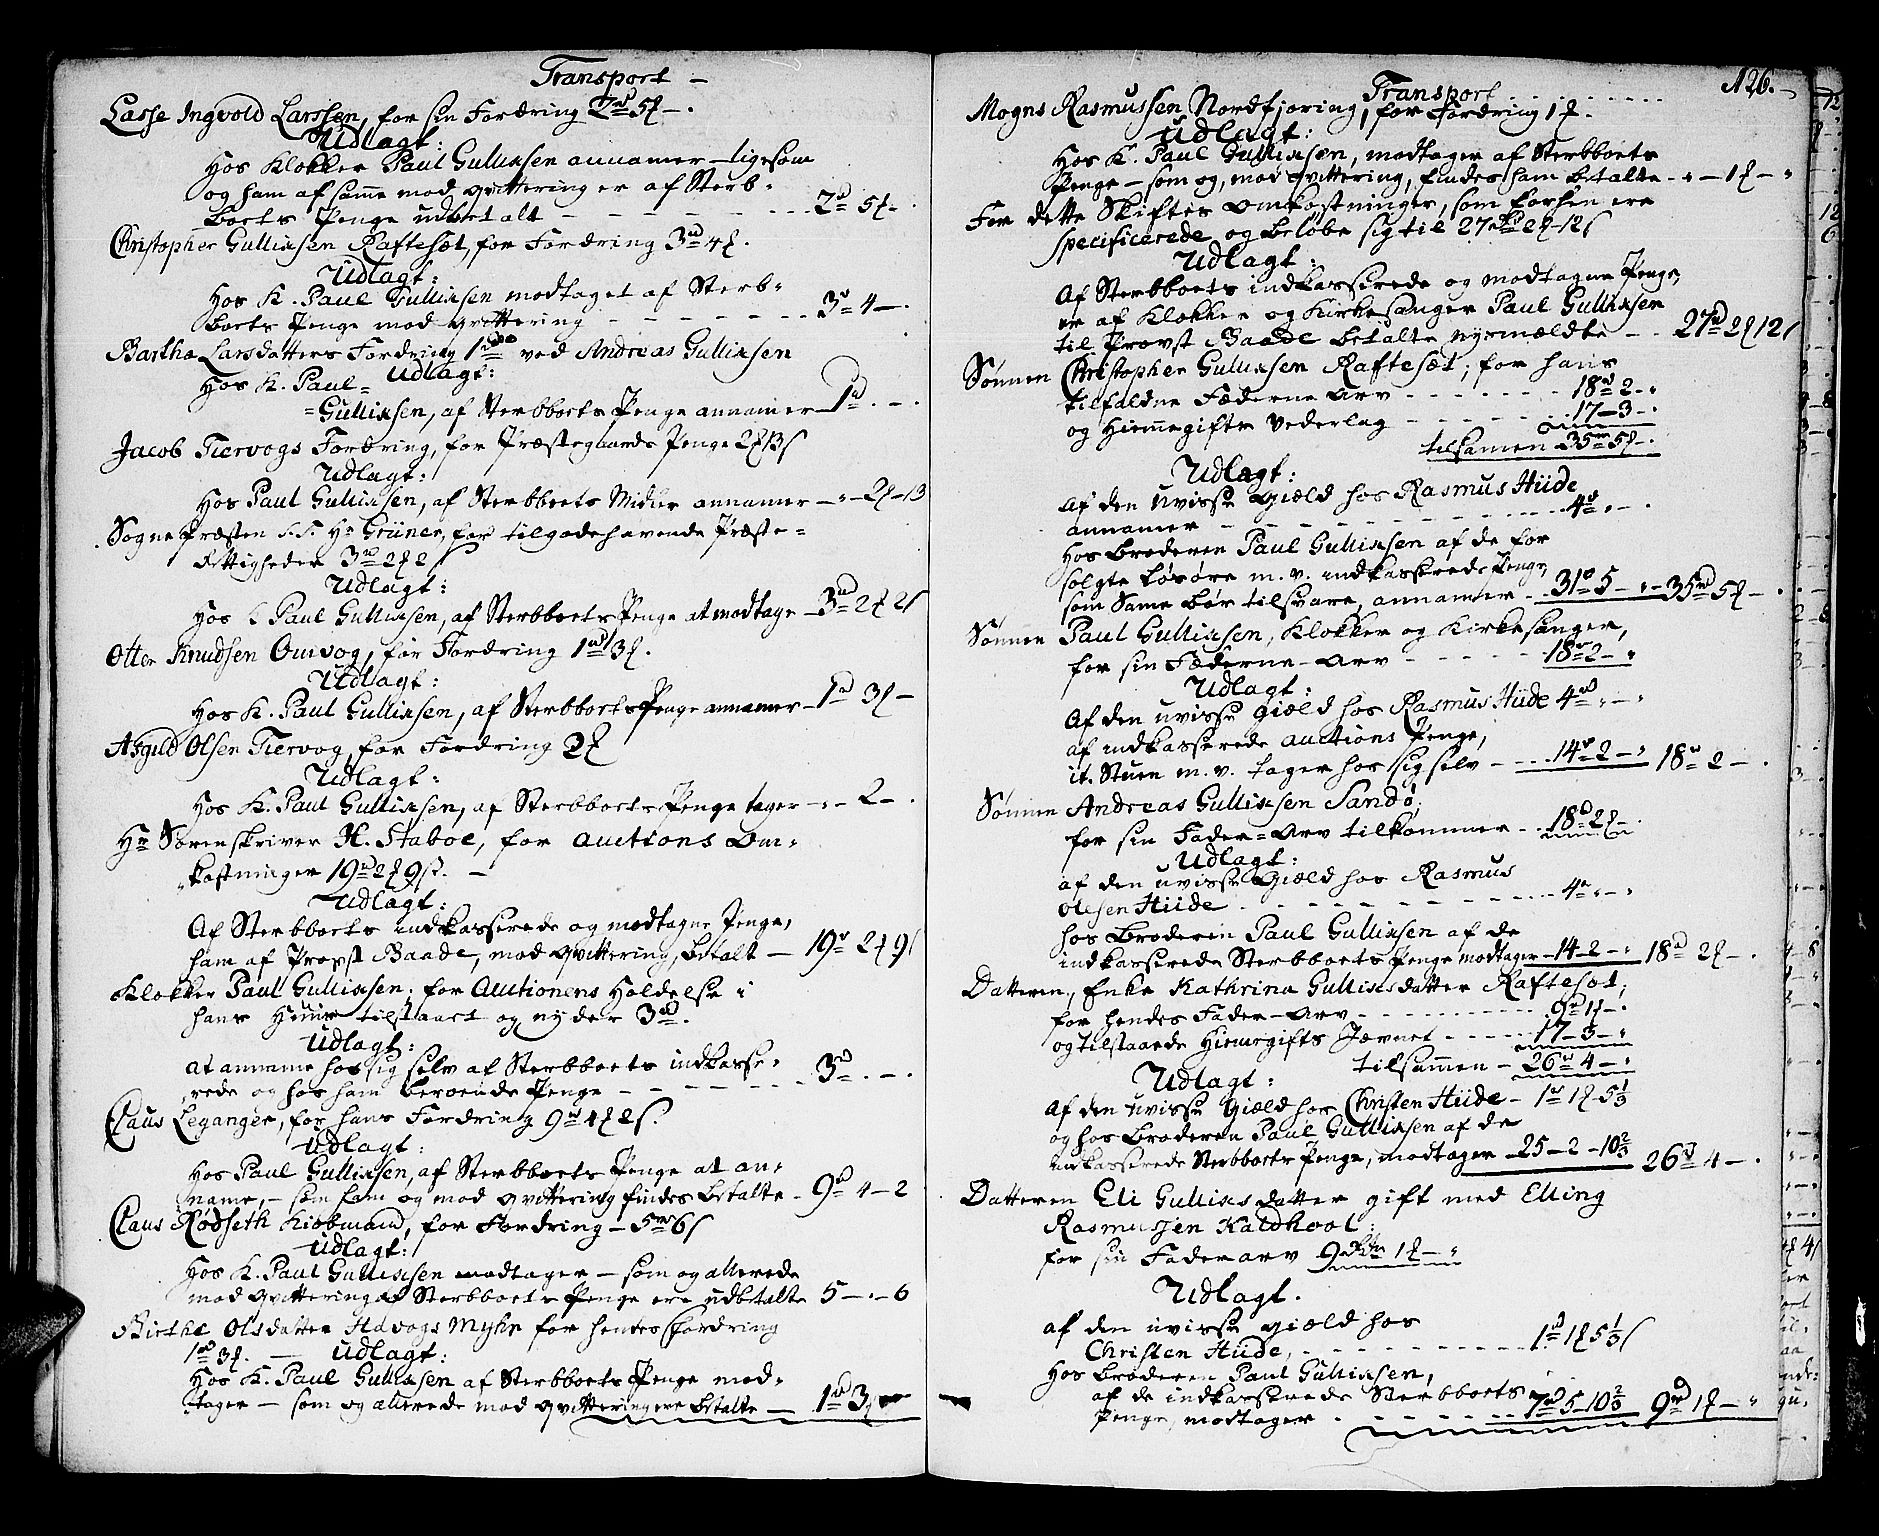 Transport –
Lasse Ingvold Larssen, for sin Fordring 2rd 5 –.
Udlagt:
Hos Klokker Paul Gullixsen annamer – ligesom
og ham af samme mod qvittering er af Sterb-
boets Penge udbetalt – – – – – – – 2rd 5 –.
Christopher Gullixsen Raftesæt, for Fordring 3rd 4.
Udlagt:
Hos K. Paul Gullixsen modtaget af Sterb-
boets Penge mod qvittering – – – – – – 3 – 4 –.
Bartha Larsdatters Fordring 1rd ved Andreas Gullixsen
Udlagt:
Hos K. Paul =
= Gullixsen, af Sterbboets Penge annamer – 1rd . – .
Jacob Tiervogs Fordring, for Præstegaards Penge 2 13 s
Udlagt:
Hos Paul Gullixsen, af Sterbboets Midler annamer – „ – 2 – 13
Sogne Præsten S.T. Hr Grüner, for tilgodehavende Præste-
rettigheder 3rd 2 2 s
Udlagt:
Hos K Paul Gullixsen, af Sterbboets Penge at modtage – 3rd 2 2 s
Otter Knudsen Ourvog, for Fordring 1rd 3.
Udlagt:
Hos K. Paul Gullixsen, af Sterbboets Penge annamer – 1rd 3 –
Asgild Olsen Tiervog, for Fordring 2
Udlagt:
Hos K. Paul Gullixsen, af Sterbboets Penge tager – „ – 2 – .
Hr Sorenskriver H. Staboe, for Auctions Om-
kostninger 19rd 2 9 s. –
Udlagt:
Af Sterbboets indkasserede og modtagne Penge,
ham af Provst Baade, mod qvittering, betalt – 19rd 2 9 s
Klokker Paul Gullixsen, for Auctionens Holdelse i
hans Huus tilstaaet og nyder 3rd.
Udlagt:
at annamme hos sig selv af Sterbboets indkasse-
rede og hos ham beroende Penge – – – – – 3rd . – .
Claus Leganger, for hans Fordring 9rd 4 2 s.
Udlagt:
Hos Paul Gullixsen, af Sterbboets Penge at an-
name, – som ham og mod qvittering findes betalte – 9rd 4 – 2
Claus Rødseth Kiøbmand, for Fordring – 5rd 6 s
Udlagt:
Hos K. Paul Gullixsen modtager – som og allerede
mod qvittering af Sterbboets Penge ere udbetalte 5 – . – 6
Birthe Olsdatter Havogs Myhr for hendes Fordring
1rd 3. – Udlagt:
Hos K. Paul Gullixsen af Sterbboets Penge mod-
tager – som og allerede mod qvittering ere betalte – 1rd 3
126. –
Transport
Mogns Rasmussen Nordfjøring, for Fordring 1.
Udlagt:
Hos K. Paul Gullixsen, modtager af Sterbboets
Penge – som og, mod qvittering, findes ham betalte – „ – 1 – „
For dette Skiftes Omkostninger, som forhen ere
specificerede og beløbe sig til 27rd 2 – 12 s
Udlagt:
Af Sterbboets indkasserede og modtagne Penge,
er af Klokker og Kirkesanger Paul Gullixsen
til Provst Baade betalte nysmældte – – 27rd 2 12 s
Sønnen Christopher Gullixsen Raftesæt; for hans
tilfaldne Fæderne Arv – – – – – – – 18rd 2 – „
og Hiemmegifts Vederlag – – – – – – 17 – 3 – „
tilsamen 35rd 5 – .
Udlagt:
Af den uvisse Giæld hos Rasmus Hiide
annamer – – – – – – – – – – 4rd „ – .
Hos Broderen Paul Gullixsen af de for
solgte løsøre m. v. indkasserede Penge,
som Same bør tilsvare, annamer – 31rd 5 – „ – 35rd 5 – .
Sønnen Paul Gullixsen, Klokker og Kirkesanger,
for sin Fæderne – Arv – – – – – – 18rd 2 – „
Udlagt:
Af den uvisse Giæld hos Rasmus Hiide 4rd „ – „
af indkasserede Auctions Penge,
it. Stuen m. v. tager hos sig selv – – 14rd 2 – „ 18rd 2 – .
Sønnen Andreas Gullixsen Sandø,
for sin Fader = Arv tilkommer – – 18rd 2 – .
Udlagt:
af den uvisse Giæld hos Rasmus
Olesen Hiide – – – – – – – – – – 4rd „ – „
hos Broderen Paul Gullixsen af de
indkasserede Sterbboets Penge modtager – 14 – 2 – „ 18rd 2 – .
Datteren, Enke Kathrina Gullixsdatter Raftesæt;
for hendes Fader – Arv – – – – – – – – 9rd 1 – .
og tilstaaede Hiemegifts Jævnet – – – – 17 – 3 – „
tilsammen – 26rd 4 – „
Udlagt:
Af den uvisse Giæld hos Christen Hiide – 1rd 1 5 1/3
og hos Broderen Paul Gullixsen af de
indkasserede Sterbboets Penge, modtager – 25 – 2 – 10 2/3 26rd 4 – .
Datteren Eli Gullixsdatter gift med Elling
Rasmussen Kaldhool:
for sin Faderarv 9rd 1 – „
Udlagt.
af den uvisse giæld hos
Christen Hiide, – – – – – – – – – – 1rd 1 5 1/3 s
Hos broderen Paul Gullixsen,
af de indkasserede Sterbboets
Penge, modtager . – – – – – – 7rd 5 – 10 2/3 9rd 1 – „